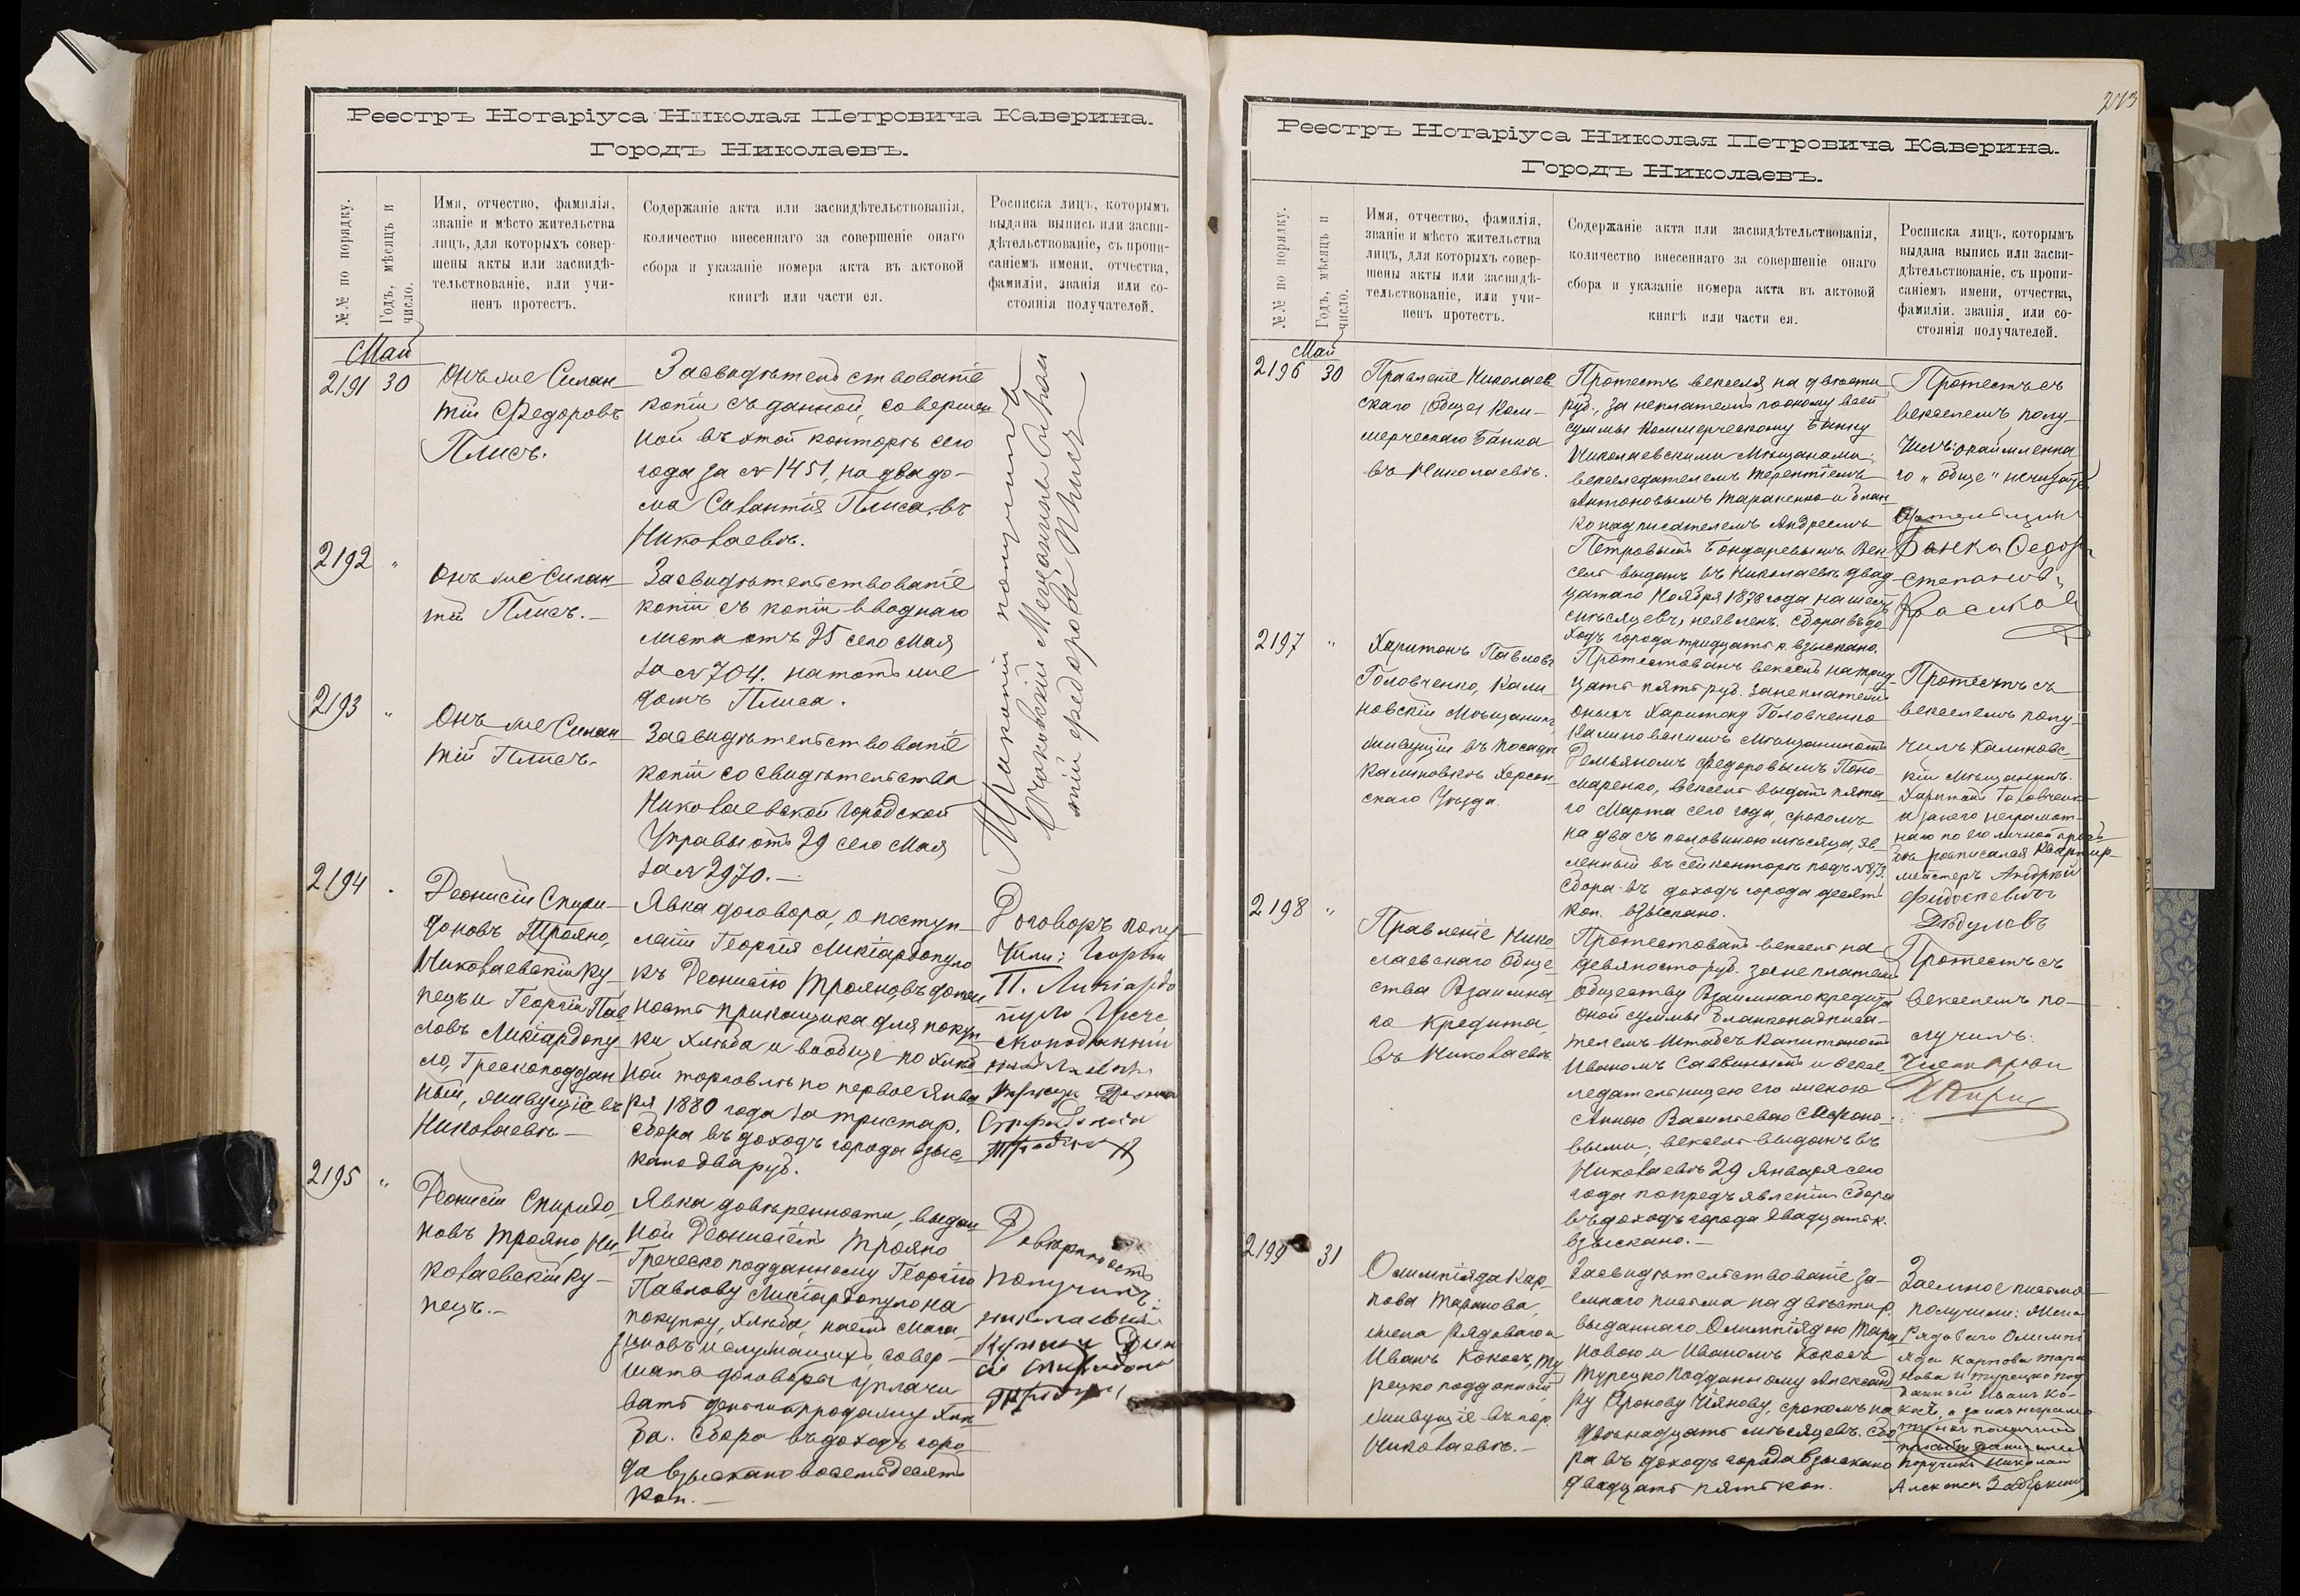 Реестръ Нотаріуса Николая Петровича Каверина.
Городъ Николаевъ.
№№ по порядку.
Годъ, мѣсяцъ и
число.
Имя, отчество, фамилія,
званіе и мѣсто жительства
лицъ, для которыхъ совер-
шены акты или засвидѣ-
тельствованіе, или учи-
ненъ протестъ.
Содержаніе акта или засвидѣтельствованія,
количество внесеннаго за совершеніе онаго
сбора и указаніе номера акта въ актовой
книгѣ или части ея.
Росписка лицъ, которымъ
выдана выпись или засви-
дѣтельствованіе, съ пропи-
саніемъ имени, отчества,
фамиліи, званія или со-
стоянія получателей.
Май
2191 30
Онъ же Силан-
тій Федоровъ
Плисъ.
Засвидѣтельствованіе
копіи съ данной, совершен
ной въ этой конторѣ сего
года за № 1451, на два до-
ма Силантія Плиса, въ
Николаевѣ.
2192 "
Онъ же Силан-
тій Плисъ.-
Засвидѣтельствованіе
копіи съ копіи вводнаго
листа отъ 25 сего Мая
за № 704. на тотъ же
домъ Плиса.
2193 "
Онъ же Силан
тій Плисъ.
Засвидѣтельствованіе
копіи со свидѣтельства
Николаевской Городской
Управы отъ 29 сего Мая
за № 2970.-
Три копіи получилъ
Очаковскій Мещанинъ Силан
тій Федоровъ Плисъ
2194 "
Деонисій Спири-
доновъ Трояно,
Николаевскій ку-
пецъ и Георгій Пав
ловъ Ликіардопу
ло, Грекоподдан
ный, живущіе въ
Николаевѣ.-
Явка договора, о поступ-
леніи Георгія Ликіардопуло
къ Деонисію Трояно, въ долж
ность прикащика для покуп
ки хлѣба и вообще по хлѣб
ной торговлѣ по первое Янва
ря 1880 года за триста р.
Сбора въ доходъ города взыс-
кано два руб.
Договоръ полу-
чили: Георгій
П. Ликіардо
пуло Грече
скоподданній
Спиридоновъ
Трояно
2195 "
Деонисій Спиридо-
новъ Трояно, Ни-
колаевскій ку-
пецъ.-
Явка довѣренности, выдан
ной Деонисіемъ Трояно
Греческо подданному Георгію
Павлову Ликіардопуло на
покупку, хлѣба, наемъ мага-
зиновъ и служащихъ, совер-
шать договоры уплачи
вать деньги и продажу хлѣ
ба. Сбора въ доходъ горо
да взыскано восемьдесятъ
коп.-
Довѣренность
получилъ.
николаевскій
Купецъ Діони
сій Спиридоновъ
Трояно
213
Реестръ Нотаріуса Николая Петровича Каверина.
Городъ Николаевъ.
№№ по порядку.
Годъ, мѣсяцъ и
число.
Имя, отчество, фамилія,
званіе и мѣсто жительства
лицъ, для которыхъ совер-
шены акты или засвидѣ-
тельствованіе, или учи-
ненъ протестъ.
Содержаніе акта или засвидѣтельствованія,
количество внесеннаго за совершеніе онаго
сбора и указаніе номера акта въ актовой
книгѣ или части ея.
Росписка лицъ, которымъ
выдана выпись или засви-
дѣтельствованіе, съ пропи-
саніемъ имени, отчества,
фамиліи. званія. или со-
стоянія получателей.
Май
2196 30
Правленіе Николаев
скаго (Обще) Ком-
мерческаго Банка
въ Николаевѣ.
Протестъ векселя, на двѣсти
руб., за неплатежъ по оному всей
суммы Коммерческому Банку
Николаевскими Мѣщанами:
векселедателемъ Терентіемъ
Антоновымъ Тараненко и блан
ко надписателемъ Андреемъ
Петровымъ Бондаревымъ. Век
сель выданъ въ Николаевѣ двад
цатаго Ноября 1878 года на шесть
мѣсяцевъ, неявленъ. Сбора въ до-
ходъ города тридцать к. взыскано.
Протестъ съ
векселемъ полу-
чилъ:
го „Обще" нечитать
Артельщикъ
Банка Федоръ
Степановъ
2197 "
Харитонъ Павловъ
Головченко, Кали
новскій Мѣщанинъ,
живущій въ посадѣ
Калиновкѣ Херсон-
скаго Уѣзда.
Протестованъ вексель на трид
цать пять руб. за неплатежъ
оныхъ Харитону Головченко
Калиновскимъ Мѣщаниномъ
Демьяномъ Федоровымъ Поно-
маренко, вексель выданъ пята-
го Марта сего года, срокомъ
на два съ половиною мѣсяца, яв
ленный въ сей конторѣ подъ № 873.
Сбора въ доходъ города десять
коп. взыскано.
Протестъ съ
векселемъ полу-
чилъ Калиновс-
кій мѣщанинъ.
Харитонъ Головченко
а за него неграмот-
наго по его личной прось
бѣ росписался Квартир-
мейстеръ Андрей
2198 "
Правленіе Нико
лаевскаго Обще-
ства Взаимна
го Кредита,
въ Николаевѣ.
Протестованъ вексель на
девяносто руб. за неплатежъ
Обществу Взаимнаго кредита
оной суммы бланконадписа-
телемъ Штабсъ Капитаномъ
Иваномъ Саввинымъ и вексе-
ледательницею его женою
Анною Васильевою Мироно-
выми; вексель выданъ въ
Николаевѣ 29 Января сего
года по предъявленію Сбора
въ доходъ города двадцать к.
взыскано.-
Протестъ съ
векселемъ по-
лучилъ:
Членъ Прав
2199 31
Олимпіяда Кар-
пова Таранова,
жена Рядоваго и
Иванъ Кокосъ, Ту
рецко подданный,
живущіе въ гор.
Николаевѣ.-
Засвидѣтельствованіе за-
емнаго письма на двѣсти р.
выданнаго Олимпіядою Тара
новою и Иваномъ Кокосъ
Турецко подданному Александ
ру Аронову Чіянову, срокомъ на
двѣнадцать мѣсяцевъ. Сбо
ра въ доходъ города взыскано
двадцать пять коп.
Заемное письмо
получили: Жена
Рядоваго Олимпі
яда Карпова Тара
нова и турецко под
данный Иванъ Ко-
косъ, а за нихъ неграмо
Поручикъ Николай